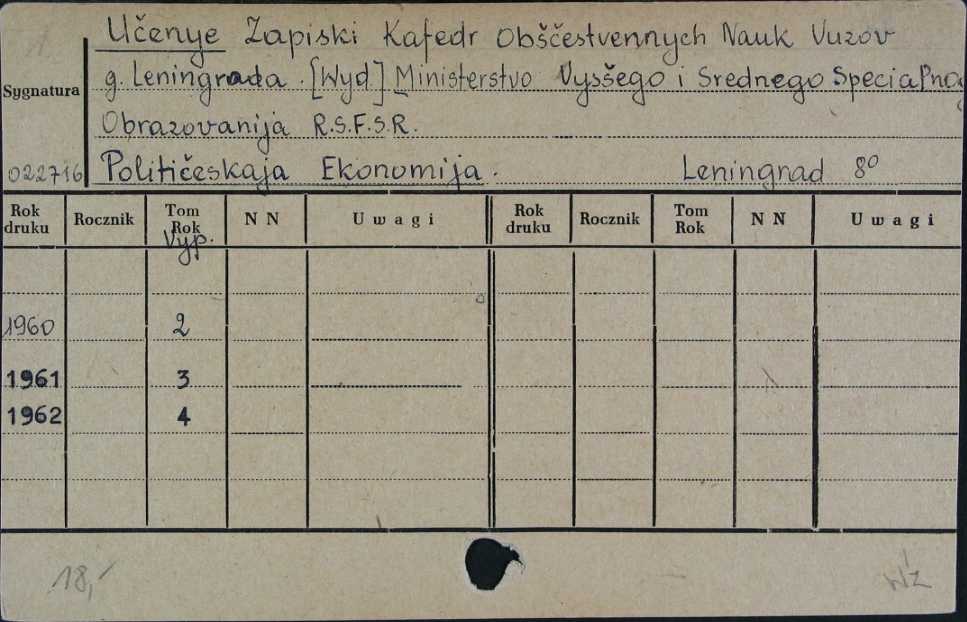 Učenye Zapiski Kafedr Obščestvennych Nauk Vuzov
g. Leningrada. [Wyd] Ministerstvo Vysšego i Srednego Special'nog
Obrazovanija R.S.F.S.R.
Političeskaja Ekonomija. Leningrad 8°
Sygnatura
022716
Rok druku Rocznik Tom Rok N N Uwagi Rok druku Rocznik Tom Rok N N Uwagi
Vyp.
1960 2
1961 3
1962 4
18,-
WŻ